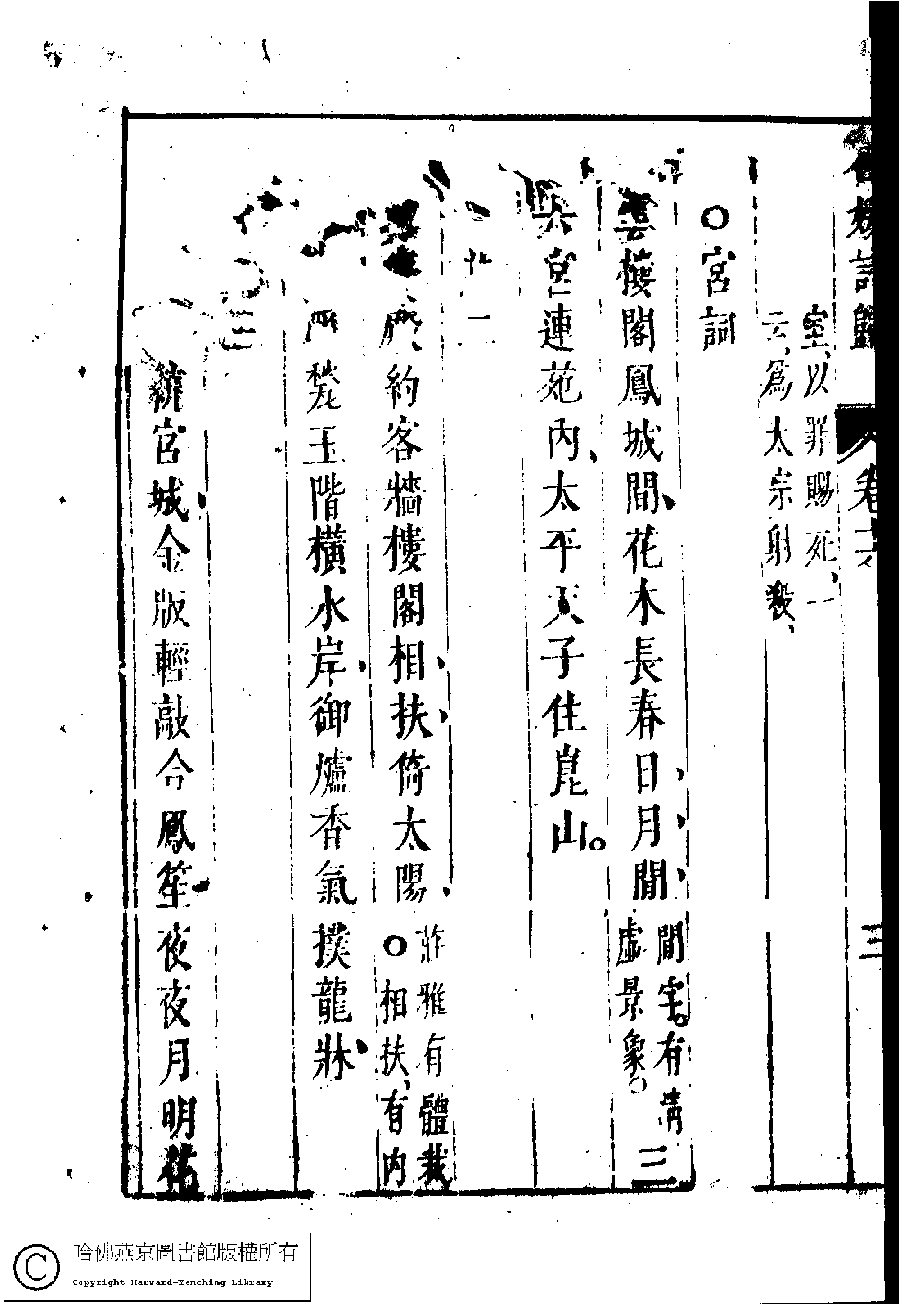 名媛詩歸 卷十六 三
室以罪賜死、一
云、爲太宗射殺、
○宮詞
雲樓閣鳳城間、花木長春日、月、閒、
閒字。有清
虛景象。三
宮連苑內、太平天子住崑山。
其二
約客牆樓閣相、扶、倚太陽、
莊雅有體裁
○相扶、有內
兩甃玉階橫水岸、御爐香氣撲龍牀、
其三
繞宮城、金版輕敲合鳳笙、夜夜月明
哈佛燕京圖書館版權所有
Copyright Harvard-Yenching Library